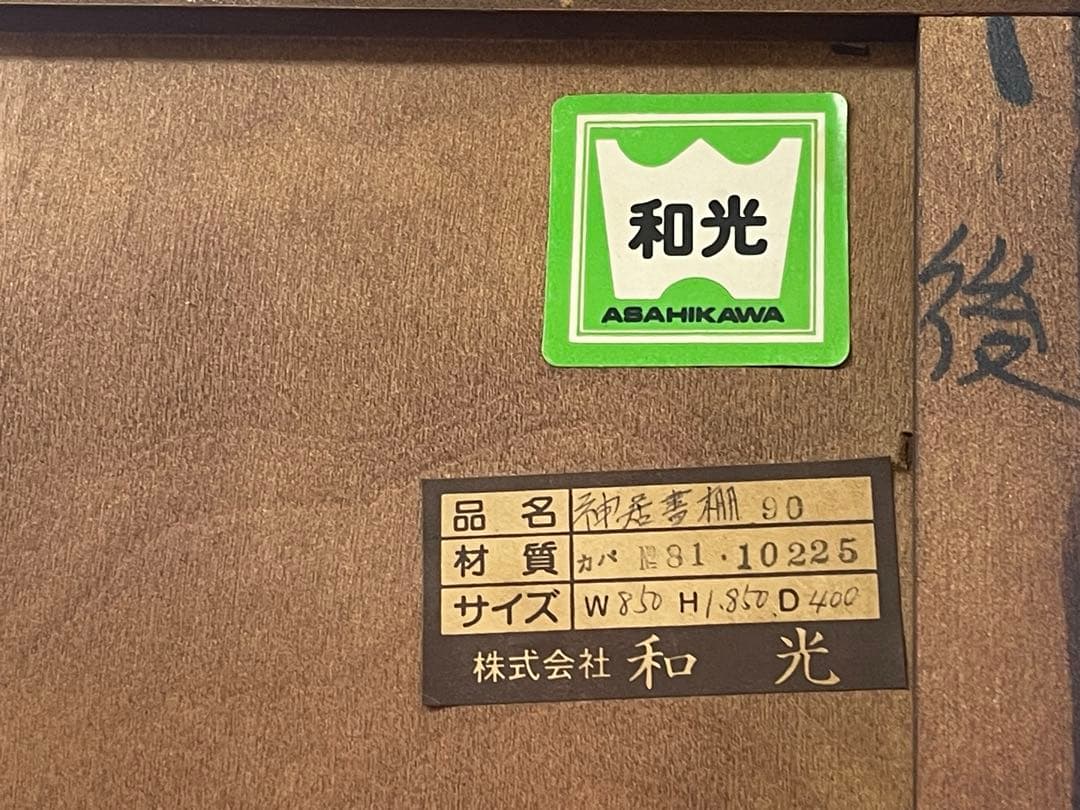 和光
ASAHIKAWA
後
品名 神居書棚 90
材質 カバ №81・10225
サイズ W850 H1,850 D400
株式会社 和光